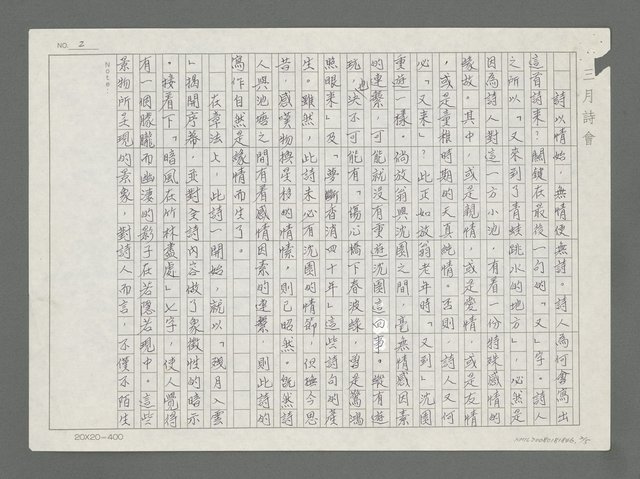 NO. 2
Note:
三月詩會
詩以情始,無情便無詩。詩人為何會寫出
這首詩來?關鍵在最後一句的「又」字。詩人
之所以「又來到了青蛙跳水的地方」,必然是
因為詩人對這一方小池,有着一份特殊感情的
緣故。其中,或是親情,或是愛情,或是友情
,或是童稚時期的天真純情。否則,詩人又何
必「又來」?此正如放翁老年時「又到」沈園
重遊一樣。倘放翁與沈園之間,毫無情感因素
的連繫,可能就沒有重遊沈園這回事。縱有遊
玩,也決不可能有「傷心橋下春波綠,曾是驚鴻
照眼來」及「夢斷香消四十年」這些詩句的產
生。雖然,此詩未必有沈園的情節,但撫今思
昔,感嘆物換星移的情愫,則已昭然。既然詩
人與池塘之間有着感情因素的連繫,則此詩的
寫作自然是緣情而生了。
在章法上,此詩一開始,就以「殘月入雲
」揭開序幕,並對全詩內容做了象徵性的暗示
。接着下「暗風在竹林盡處」七字,使人覺得
有一個朦朧而幽淒的影子在若隱若現中。這些
景物所呈現的景象,對詩人而言,不僅不陌生
20X20=400